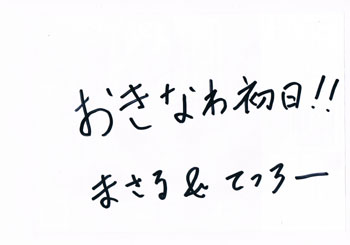 おきなわ初日!!
まさる&てつろー